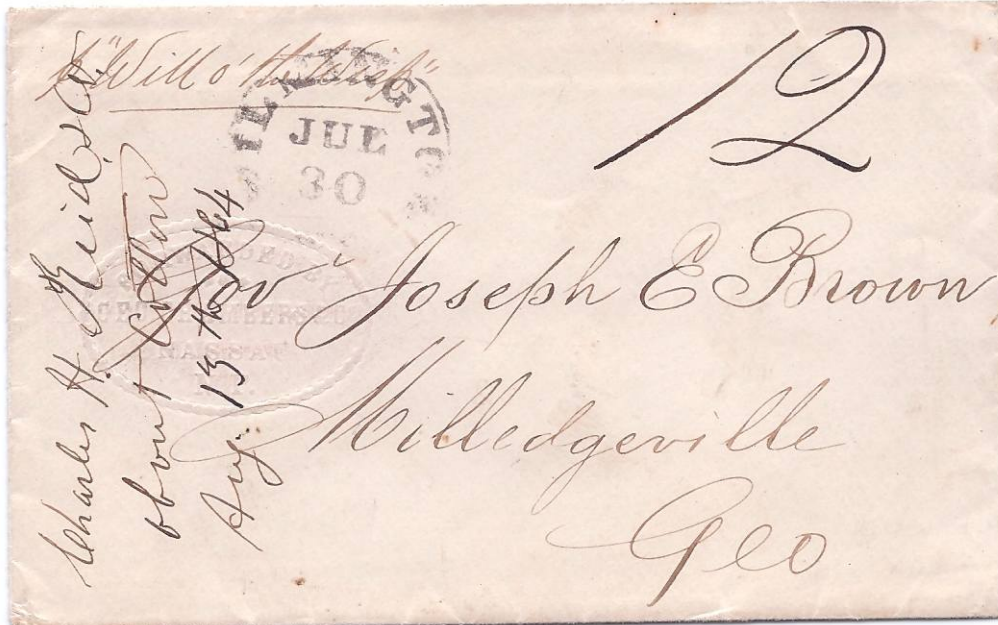 "Will o' the Wisp"
12
WILMINGTON
JUL
30
Gov Joseph E Brown
Milledgeville
Geo
Charles H. Reid & Co.
about Cotton
Aug. 13th 1864
NASSAU